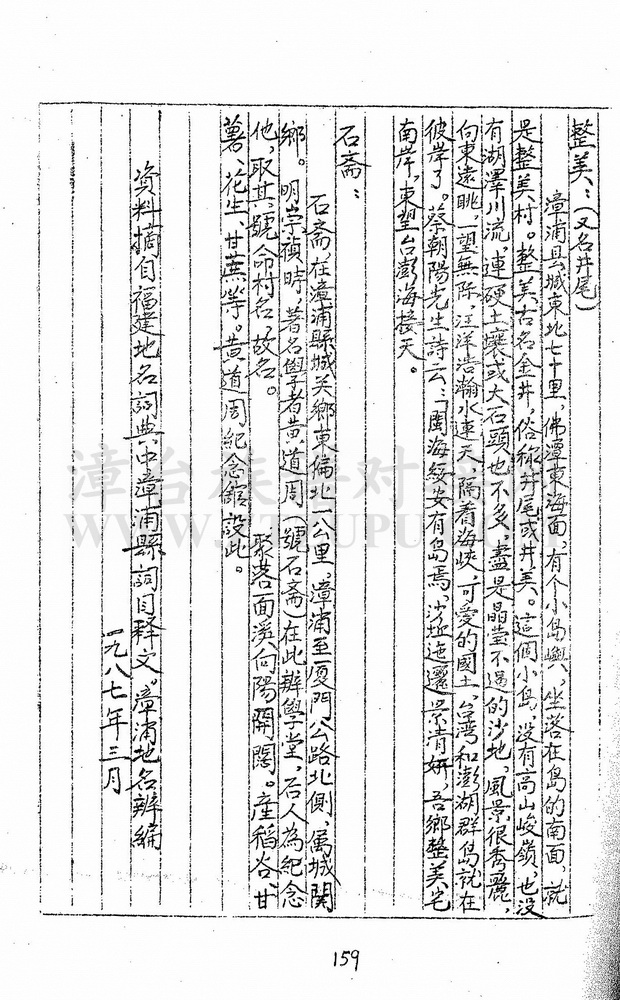 整美：（又名井尾）
漳浦县城東北七十里，佛潭東海面，有个小島嶼，坐落在島的南面，就
是整美村。整美古名金井，俗称井尾或井美。這個小島，没有高山峻嶺，也没
有湖澤川流，連硬土壤或大石頭也不多，盡是晶莹不過的沙地，風景很秀麗，
向東遠眺，一望無际，汪洋浩瀚水連天，隔着海峽，可愛的國土，台湾和澎湖群島就在
彼岸了。蔡朝陽先生詩云：「閩海綏安有島焉，沙坵迤邐景清妍，吾鄉整美宅
南岸，東望台澎海接天。
石斋：
石斋，在漳浦縣城关鄉東偏北一公里，漳浦至厦門公路北側，属城関
鄉。明崇禎時，著名學者黄道周（號石斋）在此辦學堂，后人為紀念
他，取其號命村名，故名。 聚落面溪向陽開闊。産稻谷、甘
薯、花生、甘蔗等。黄道周紀念館設此。
資料摘自福建地名詞典中漳浦縣詞目释文。漳浦地名辦編
一九八七年三月
漳台族谱对
WWW.
159